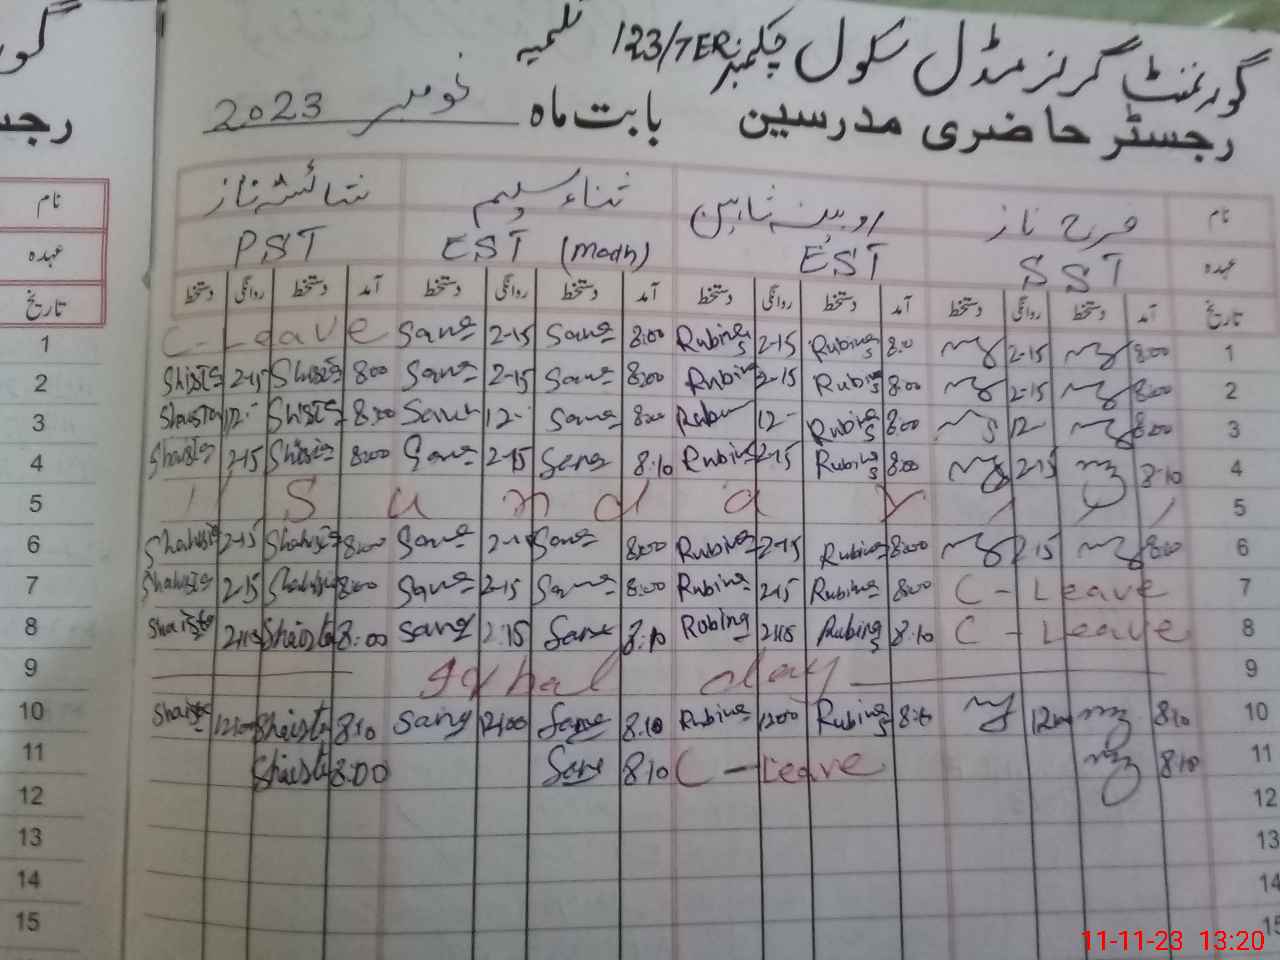 گورنمنٹ گرلز مڈل سکول چکنمبر 123/TER
رجسٹر حاضری مدرسین بابت ماہ نومبر 2023
نام فرح ناز روبینہ شاہین ثناء سلیم شائستہ ناز
عہدہ SST EST EST (Math) PST
تاریخ آمد دستخط روانگی دستخط آمد دستخط روانگی دستخط آمد دستخط روانگی دستخط آمد دستخط روانگی دستخط
1 C-Leave Sana 2-15 Sana 8:00 Rubina S 2-15 Rubina S 8:0 2-15 8:00 1
2 Shaista 2-15 Shaista 800 Sana 2-15 Sana 8:00 Rubina 2-15 Rubina S 8:00 2-15 8:00 2
3 Shaista 12- Shaista 8:00 Sana 12- Sana 8:00 Rubin 12- Rubina S 8:00 12 8:00 3
4 Shaista 2-15 Shaista 8:00 Sana 2-15 Sana 8:10 Rubina 2-15 Rubina S 8:00 2-15 8:10 4
5 Sunday 5
6 Shahista 2-15 Shahista 8:00 Sana 2-15 Sana 8:00 Rubina 2-15 Rubina 8:00 2-15 8:00 6
7 Shahista 2-15 Shahista 8:00 Sana 2-15 Sana 8:00 Rubina 2-15 Rubina 8:00 C-Leave 7
8 Shaista 2:15 Shaista 8:00 Sana 2:15 Sana 8:10 Rubina 2:15 Rubina S 8:10 C-Leave 8
9 Iqbal day 9
10 Shaista 12:00 Shaista 8:10 Sana 12:00 Sana 8:10 Rubina 12:00 Rubina S 8:10 12:00 8:10 10
11 Shaista 8:00 Sana 8:10 C-Leave 8:10 11
12 12
13 13
14 14
15 15
نام
عہدہ
تاریخ
11-11-23 13:20